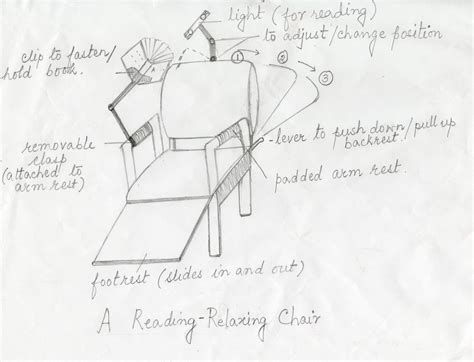 light (for reading)
to adjust/change position
clip to fasten/
hold book.
1
2
3
removable
clasp
(attached to
arm rest)
lever to push down/pull up
backrest.
padded arm rest.
footrest (slides in and out)
A Reading-Relaxing Chair